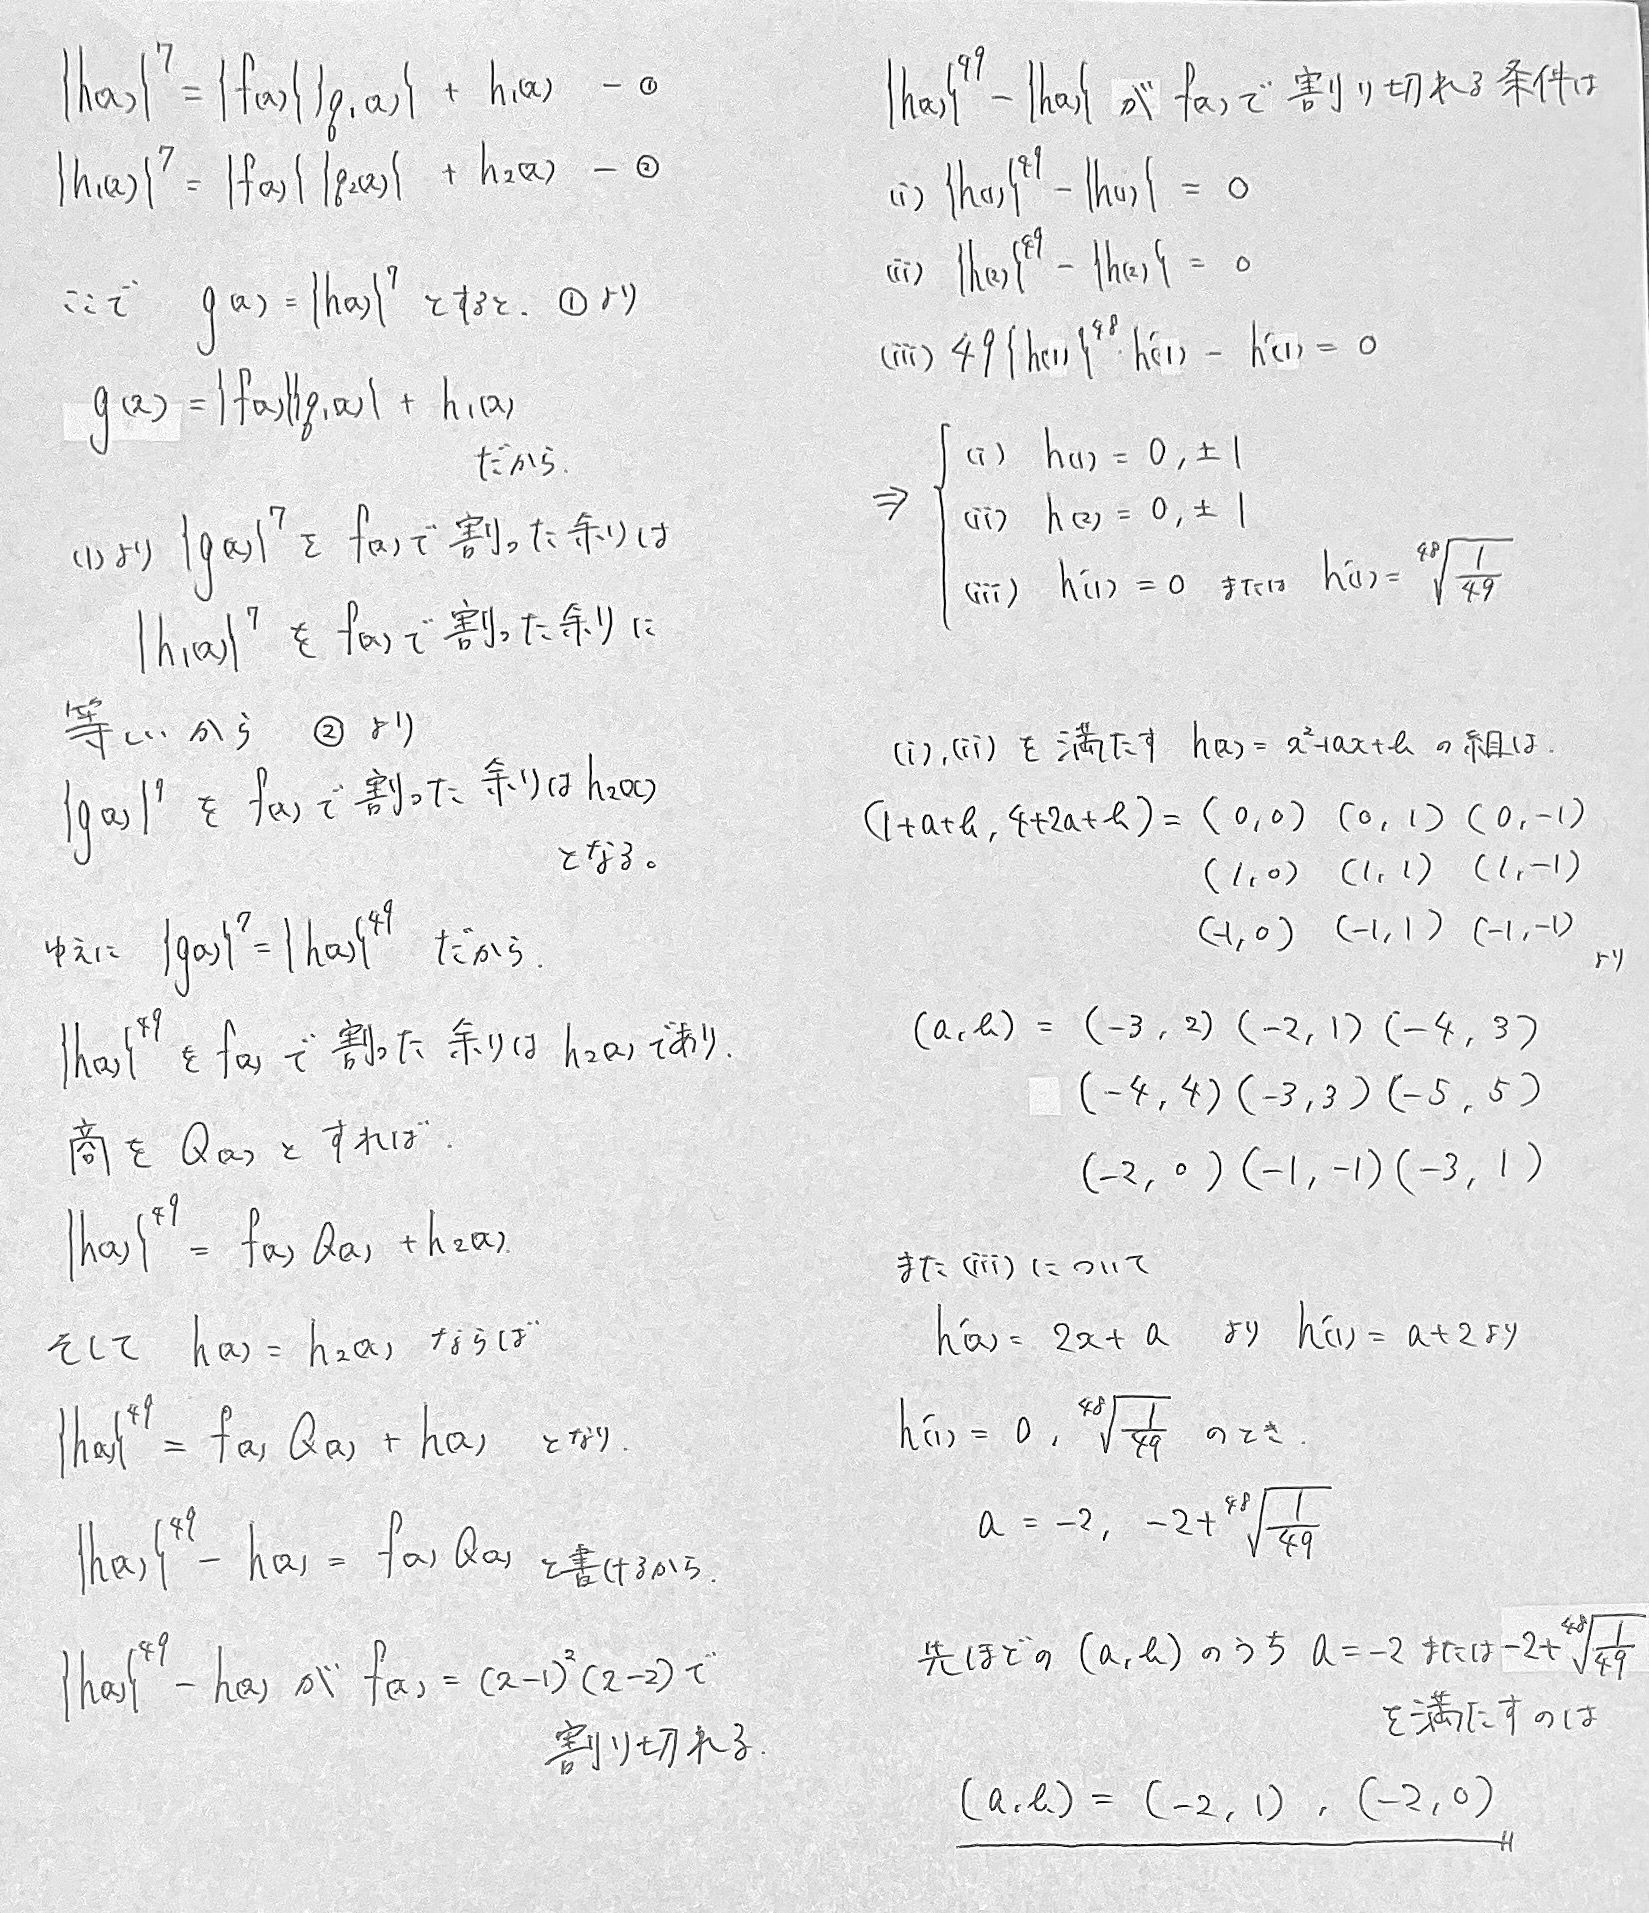 {h(x)}^7 = {f(x)}{q₁(x)} + h₁(x) -①
{h₁(x)}^7 = {f(x)}{q₂(x)} + h₂(x) -②
ここで g(x) = {h(x)}^7 とすると、①より
g(x) = {f(x)}{q₁(x)} + h₁(x)
だから.
(1)より {g(x)}^7 を f(x)で割った余りは
{h₁(x)}^7 を f(x)で割った余りに
等しいから ②より
{g(x)}^7 を f(x)で割った余りはh₂(x)
となる。
ゆえに {g(x)}^7 = {h(x)}^49 だから.
{h(x)}^49 を f(x)で割った余りは h₂(x)であり.
商を Q(x)とすれば.
{h(x)}^49 = f(x) Q(x) + h₂(x)
そして h(x) = h₂(x) ならば
{h(x)}^49 = f(x) Q(x) + h(x) となり.
{h(x)}^49 - h(x) = f(x) Q(x) と書けるから.
{h(x)}^49 - h(x) が f(x) = (x-1)²(x-2)で
割り切れる.
{h(x)}^49 - {h(x)} が f(x)で割り切れる条件は
(i) {h(1)}^49 - {h(1)} = 0
(ii) {h(2)}^49 - {h(2)} = 0
(iii) 49{h(1)}^48・h'(1) - h'(1) = 0
⇒ { (i) h(1) = 0, ±1
(ii) h(2) = 0, ±1
(iii) h'(1) = 0 または h'(1) = ⁴⁸√(1/49)
(i),(ii) を満たす h(x) = x²+ax+b の組は.
(1+a+b, 4+2a+b) = (0,0) (0,1) (0,-1)
(1,0) (1,1) (1,-1)
(-1,0) (-1,1) (-1,-1) より
(a,b) = (-3,2) (-2,1) (-4,3)
(-4,4) (-3,3) (-5,5)
(-2,0) (-1,-1) (-3,1)
また(iii)について
h'(x) = 2x+a より h'(1) = a+2より
h'(1) = 0, ⁴⁸√(1/49) のとき.
a = -2, -2+⁴⁸√(1/49)
先ほどの (a,b) のうち a=-2 または -2+⁴⁸√(1/49)
を満たすのは
(a,b) = (-2,1), (-2,0)